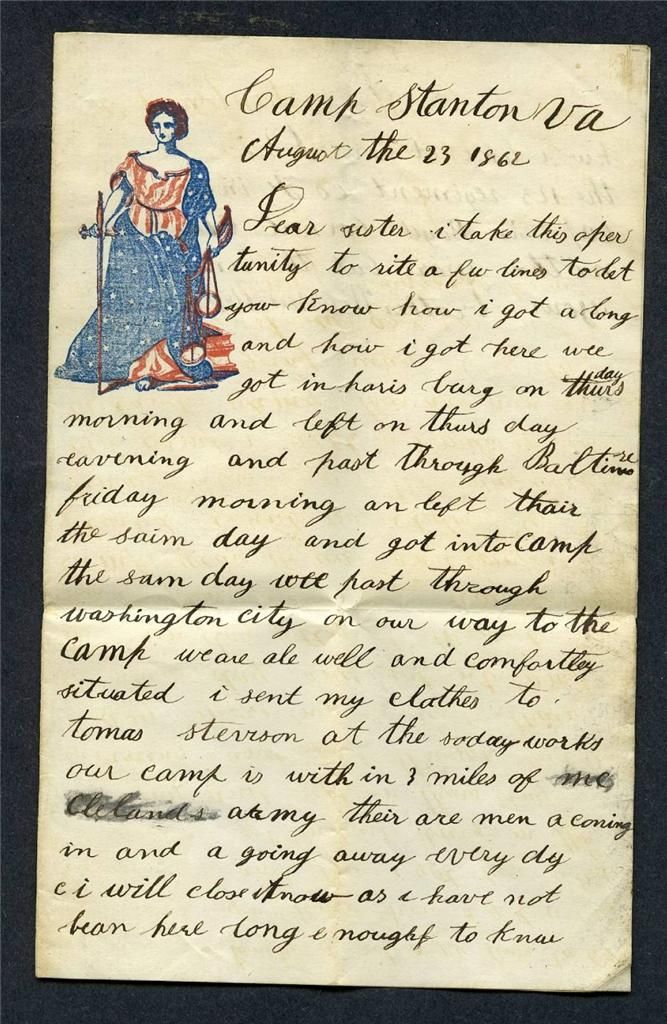 Camp Stanton Va
August the 23 1862
Dear sister i take this oper
tunity to rite a few lines to let
you know how i got a long
and how i got here wee
got in haris burg on thursday
morning and left on thurs day
eavening and past through Baltimore
friday morning an left thair
the saim day and got into camp
the sam day wee past through
washington city on our way to the
camp we are ale well and comfortley
situated i sent my clothes to
tomas stevrson at the soday works
our camp is with in 3 miles of mc
Clelands army their are men a coming
in and a going away every dy
i will close it now as i have not
bean here long enought to know